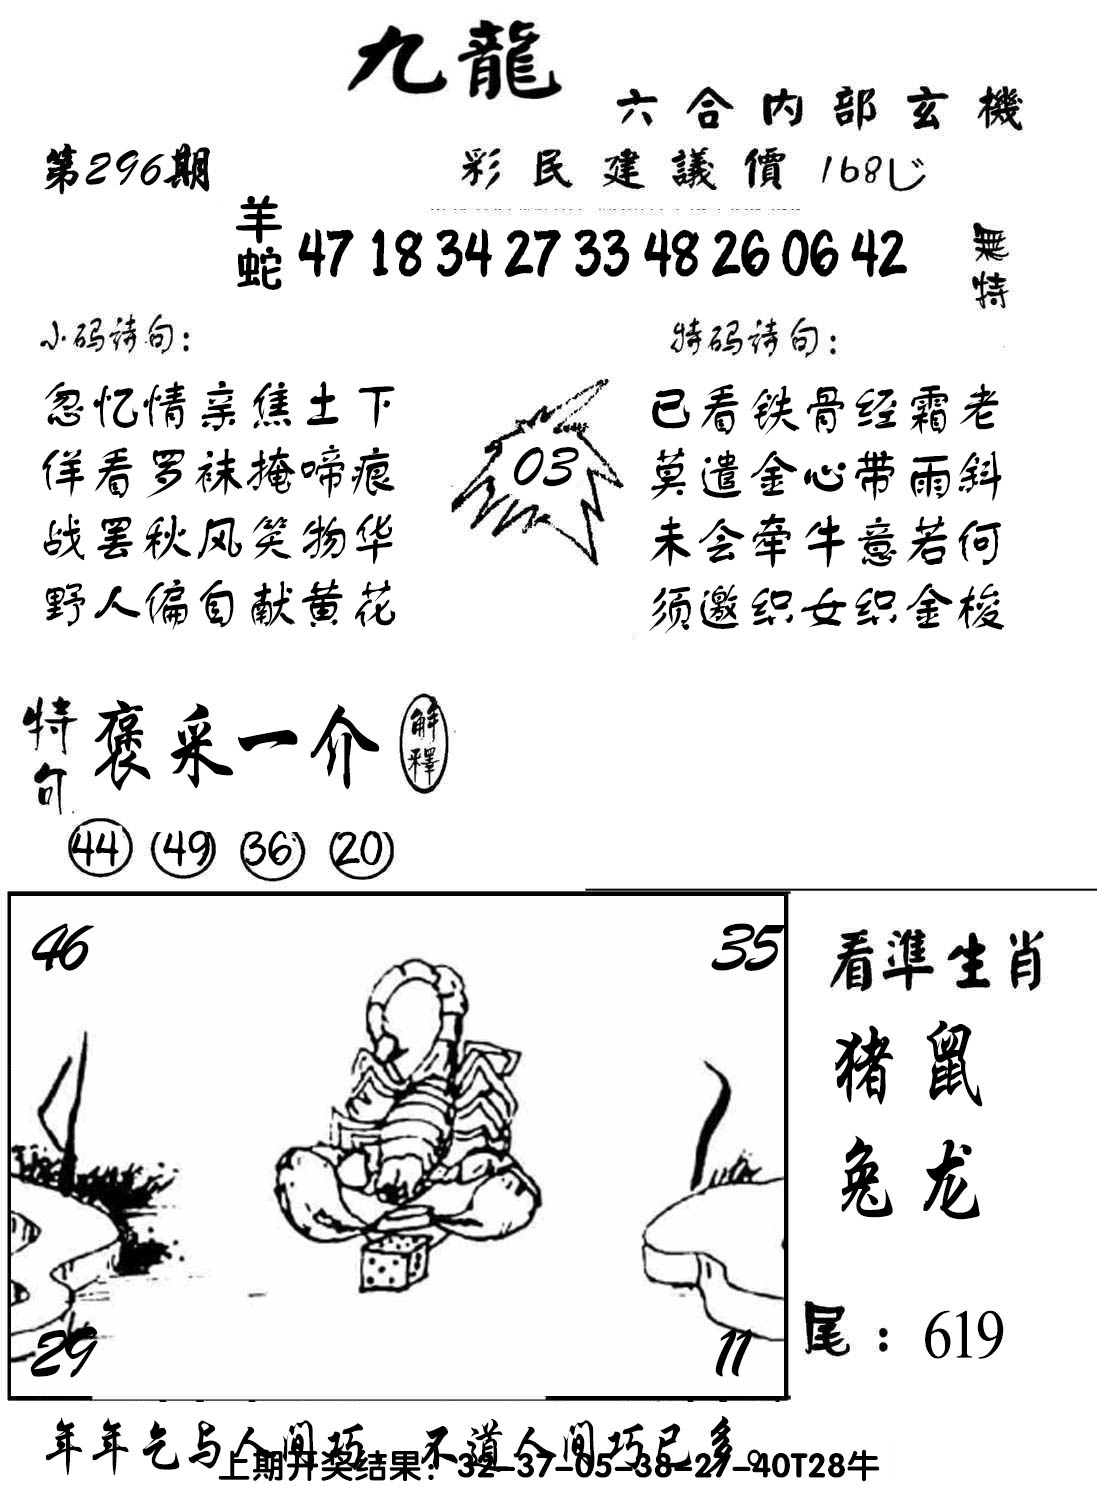 九龍
六合内部玄機
第296期
彩民建議價168じ
羊蛇 47 18 34 27 33 48 26 06 42 無特
小码诗句：
忽忆情亲焦土下
佯看罗袜掩啼痕
战罢秋风笑物华
野人偏自献黄花
03
特码诗句：
已看铁骨经霜老
莫遣金心带雨斜
未会牵牛意若何
须邀织女织金梭
特句 褒采一介 解釋
44 49 36 20
46 35
29 11
看準生肖
猪鼠
兔龙
尾：619
年年乞与人间巧 不道人间巧已多。
上期开奖结果：32-37-05-38-27-40T28牛